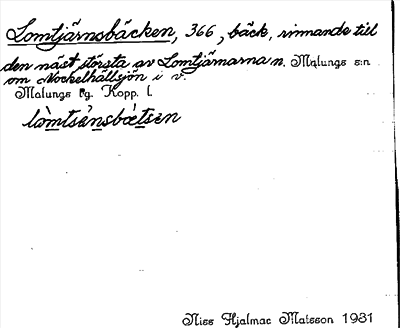 Lomtjärnsbäcken, 366, bäck, rinnande till
den näst största av Lomtjärnarna n. Malungs s:n
om Nockelhällsjön i v.
Malungs tg. Kopp. l.
lòmtsǽnsbætsen
Niss Hjalmar Matsson 1931